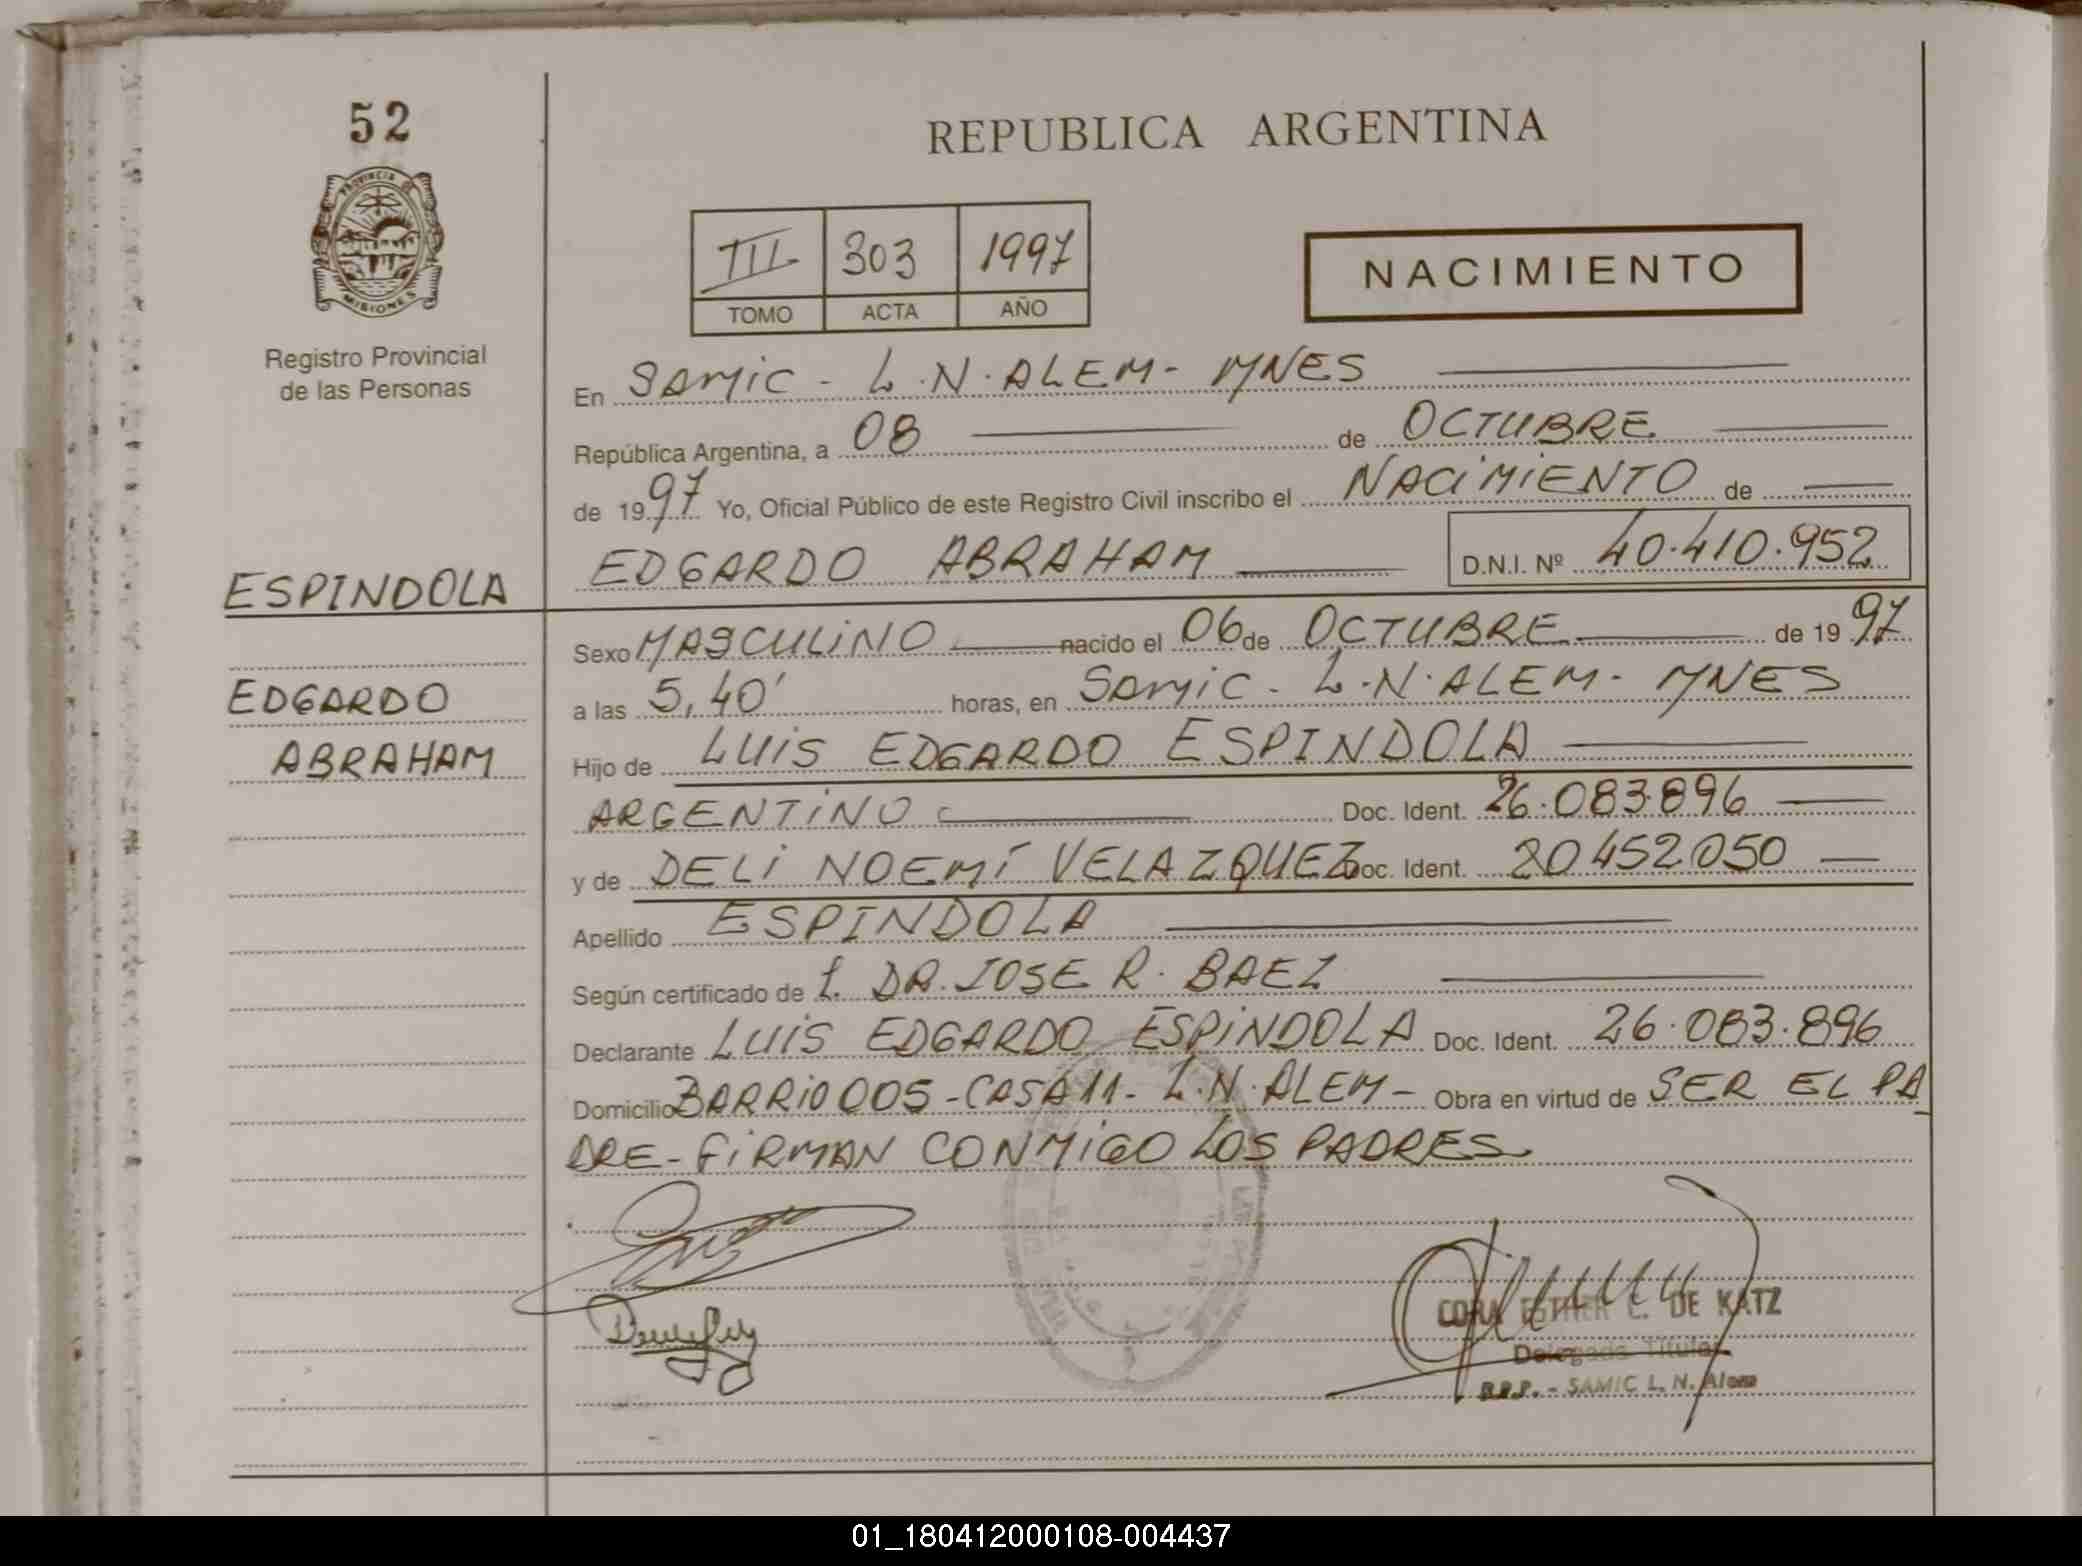 52
PROVINCIA DE
MISIONES
Registro Provincial
de las Personas
REPUBLICA ARGENTINA
III 303 1997
TOMO ACTA AÑO
NACIMIENTO
En SAMIC - L.N. ALEM - MNES
República Argentina, a 08 de OCTUBRE
de 1997 Yo, Oficial Público de este Registro Civil inscribo el NACIMIENTO de
EDGARDO ABRAHAM D.N.I. Nº 40.410.952
ESPINDOLA
EDGARDO
ABRAHAM
Sexo MASCULINO nacido el 06 de OCTUBRE de 1997
a las 5,40' horas, en SAMIC - L.N. ALEM - MNES
Hijo de LUIS EDGARDO ESPINDOLA
ARGENTINO Doc. Ident. 26.083.896
y de DELI NOEMÍ VELAZQUEZ Doc. Ident. 20452050
Apellido ESPINDOLA
Según certificado de l. DR. JOSE R. BAEZ
Declarante LUIS EDGARDO ESPINDOLA Doc. Ident. 26.083.896
Domicilio BARRIO 005 - CASA 11 - L.N. ALEM - Obra en virtud de SER EL PA
DRE - FIRMAN CONMIGO LOS PADRES
CORA ESTHER C. DE KATZ
Delegada Titular
R.P.P. - SAMIC L. N. Alem
01_180412000108-004437